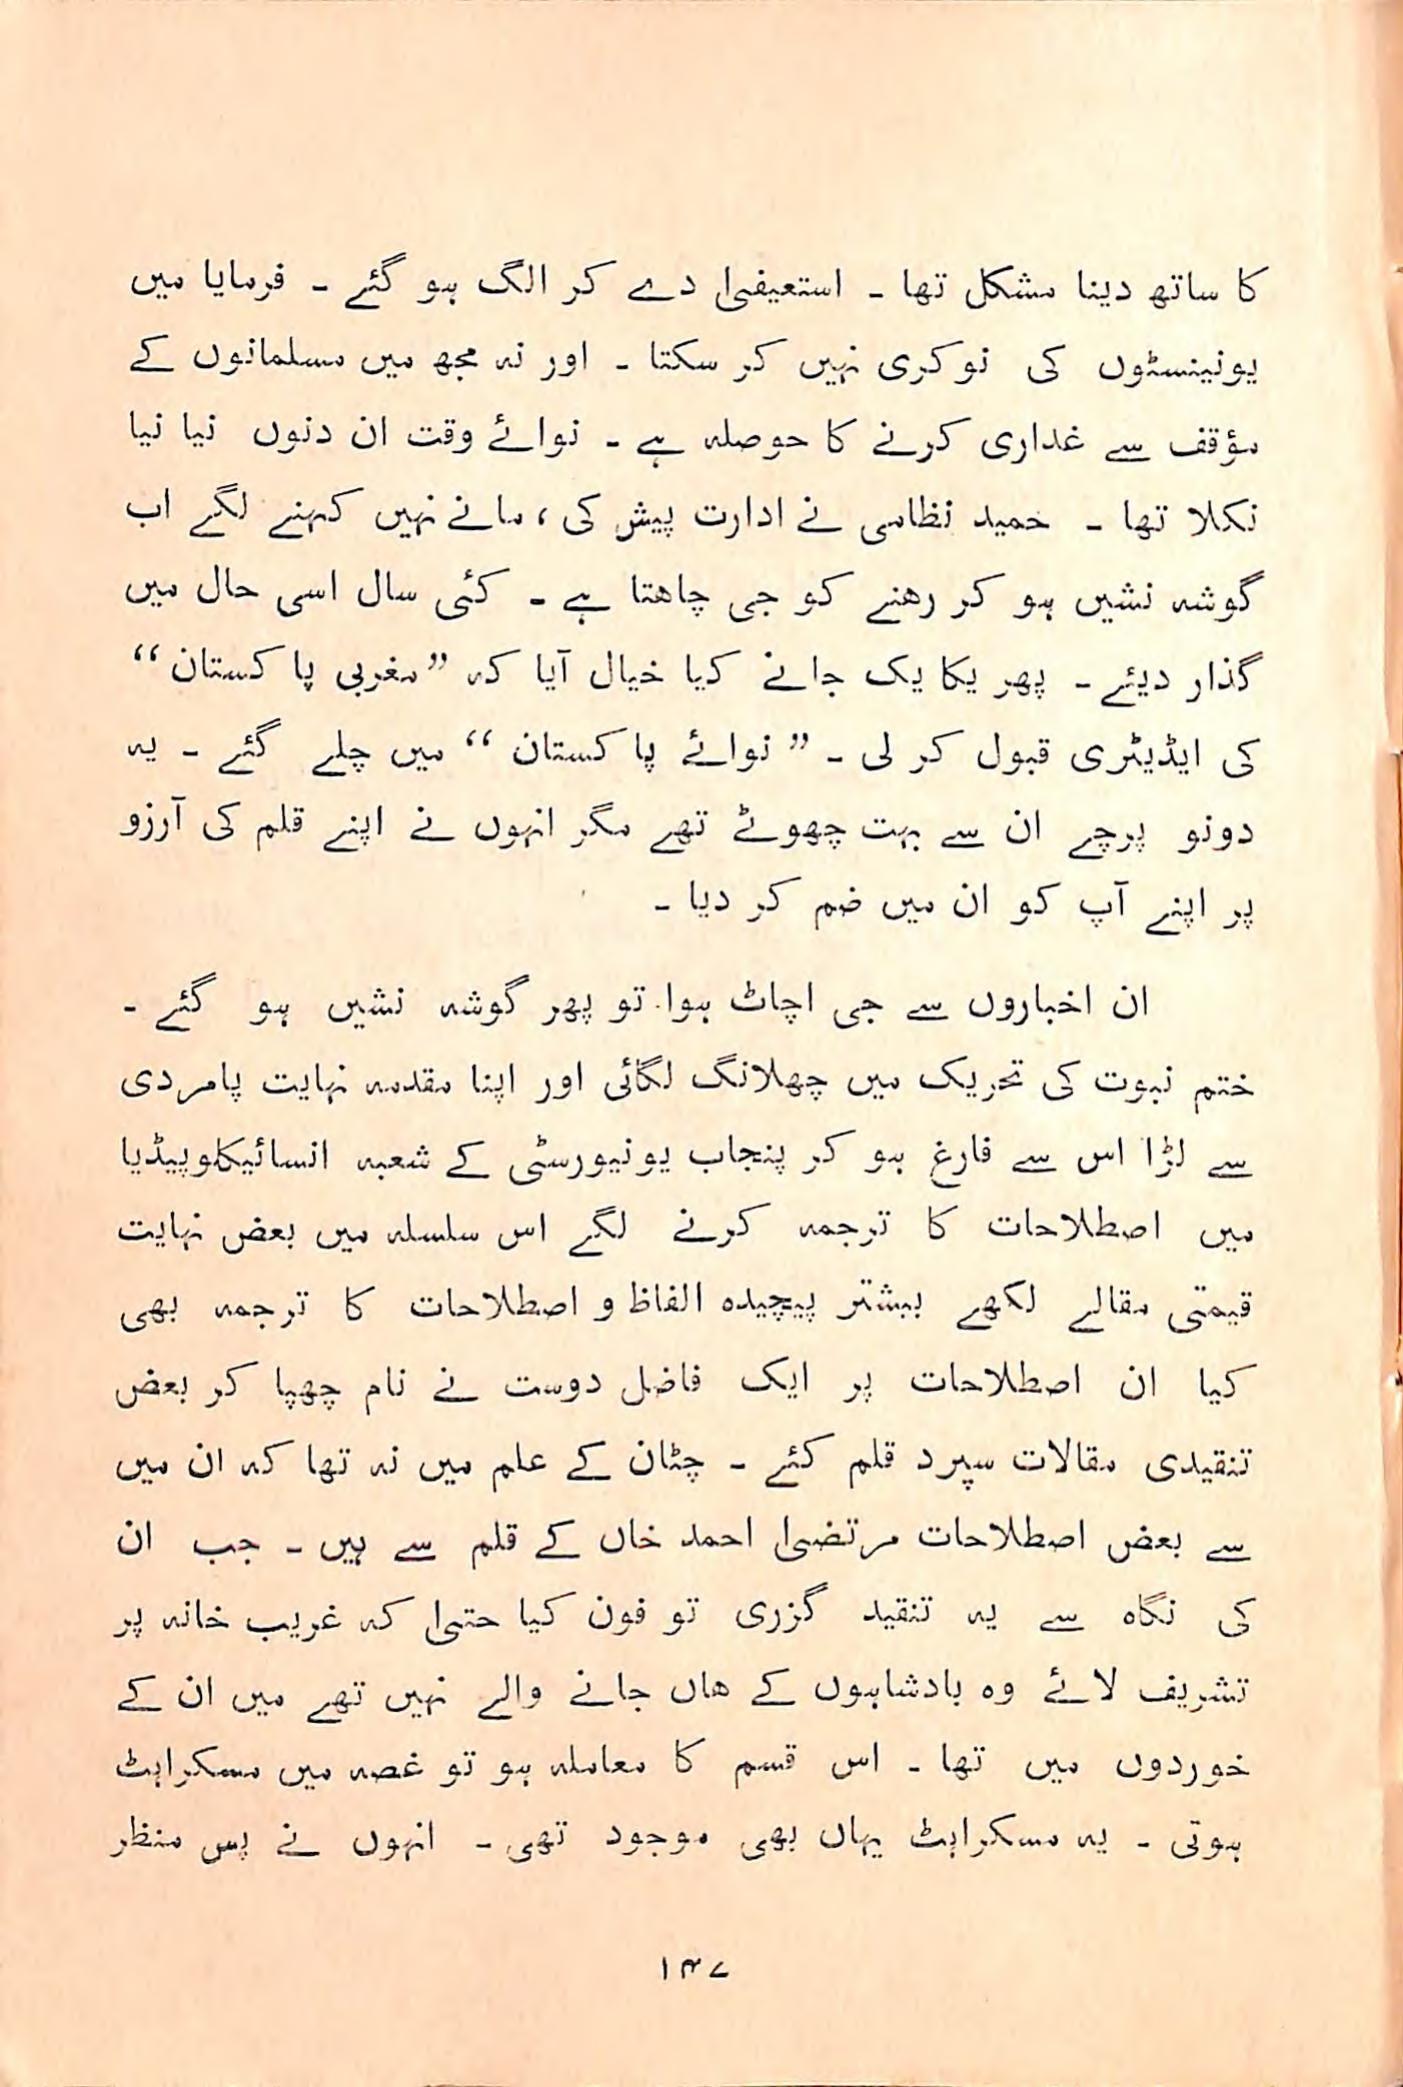 کا ساتھ دینا مشکل تھا ۔ استعیفیٰ دے کر الگ ہو گئے ۔ فرمایا میں
یونینسٹوں کی نوکری نہیں کر سکتا ۔ اور نہ مجھ میں مسلمانوں کے
مؤقف سے غداری کرنے کا حوصلہ ہے ۔ نوائے وقت ان دنوں نیا نیا
نکلا تھا ۔ حمید نظامی نے ادارت پیش کی، مانے نہیں کہنے لگے اب
گوشہ نشیں ہو کر رھنے کو جی چاھتا ہے ۔ کئی سال اسی حال میں
گذار دیئے ۔ پھر یکا یک جانے کیا خیال آیا کہ ”مغربی پاکستان“
کی ایڈیٹری قبول کر لی ۔ ”نوائے پاکستان“ میں چلے گئے ۔ یہ
دونو پرچے ان سے بہت چھوٹے تھے مگر انہوں نے اپنے قلم کی آرزو
پر اپنے آپ کو ان میں ضم کر دیا ۔
ان اخباروں سے جی اچاٹ ہوا تو پھر گوشہ نشیں ہو گئے ۔
ختم نبوت کی تحریک میں چھلانگ لگائی اور اپنا مقدمہ نہایت پامردی
سے لڑا اس سے فارغ ہو کر پنجاب یونیورسٹی کے شعبہ انسائیکلوپیڈیا
میں اصطلاحات کا ترجمہ کرنے لگے اس سلسلہ میں بعض نہایت
قیمتی مقالے لکھے بیشتر پیچیدہ الفاظ و اصطلاحات کا ترجمہ بھی
کیا ان اصطلاحات پر ایک فاضل دوست نے نام چھپا کر بعض
تنقیدی مقالات سپرد قلم کئے ۔ چٹان کے علم میں نہ تھا کہ ان میں
سے بعض اصطلاحات مرتضیٰ احمد خاں کے قلم سے ہیں ۔ جب ان
کی نگاہ سے یہ تنقید گزری تو فون کیا حتیٰ کہ غریب خانہ پر
تشریف لائے وہ بادشاہوں کے ھاں جانے والے نہیں تھے میں ان کے
خوردوں میں تھا ۔ اس قسم کا معاملہ ہو تو غصہ میں مسکراہٹ
ہوتی ۔ یہ مسکراہٹ یہاں بھی موجود تھی ۔ انہوں نے پس منظر
۱۴۷